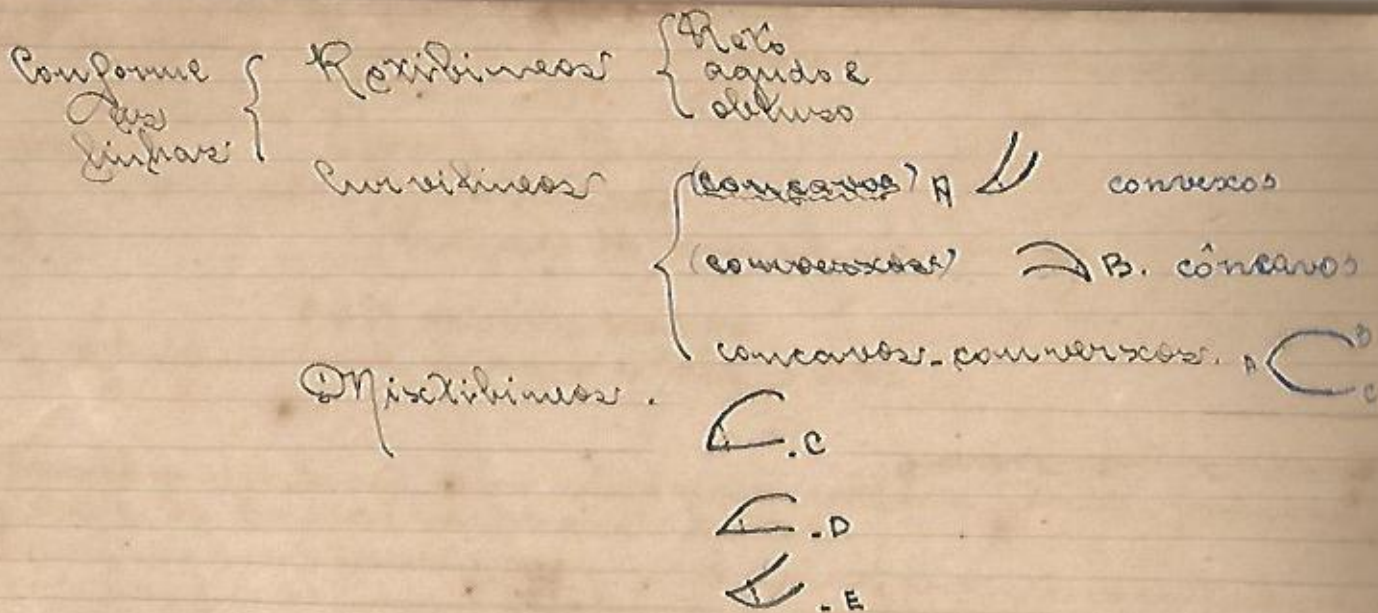 Conforme
as
linhas
Retilineos
Reto
agudo e
obtuso
Curvilineos
(concavos) A convexos
(conversxos) B. côncavos
concavos-conversxos. A B C
Mixtilineos.
.C
.D
.E